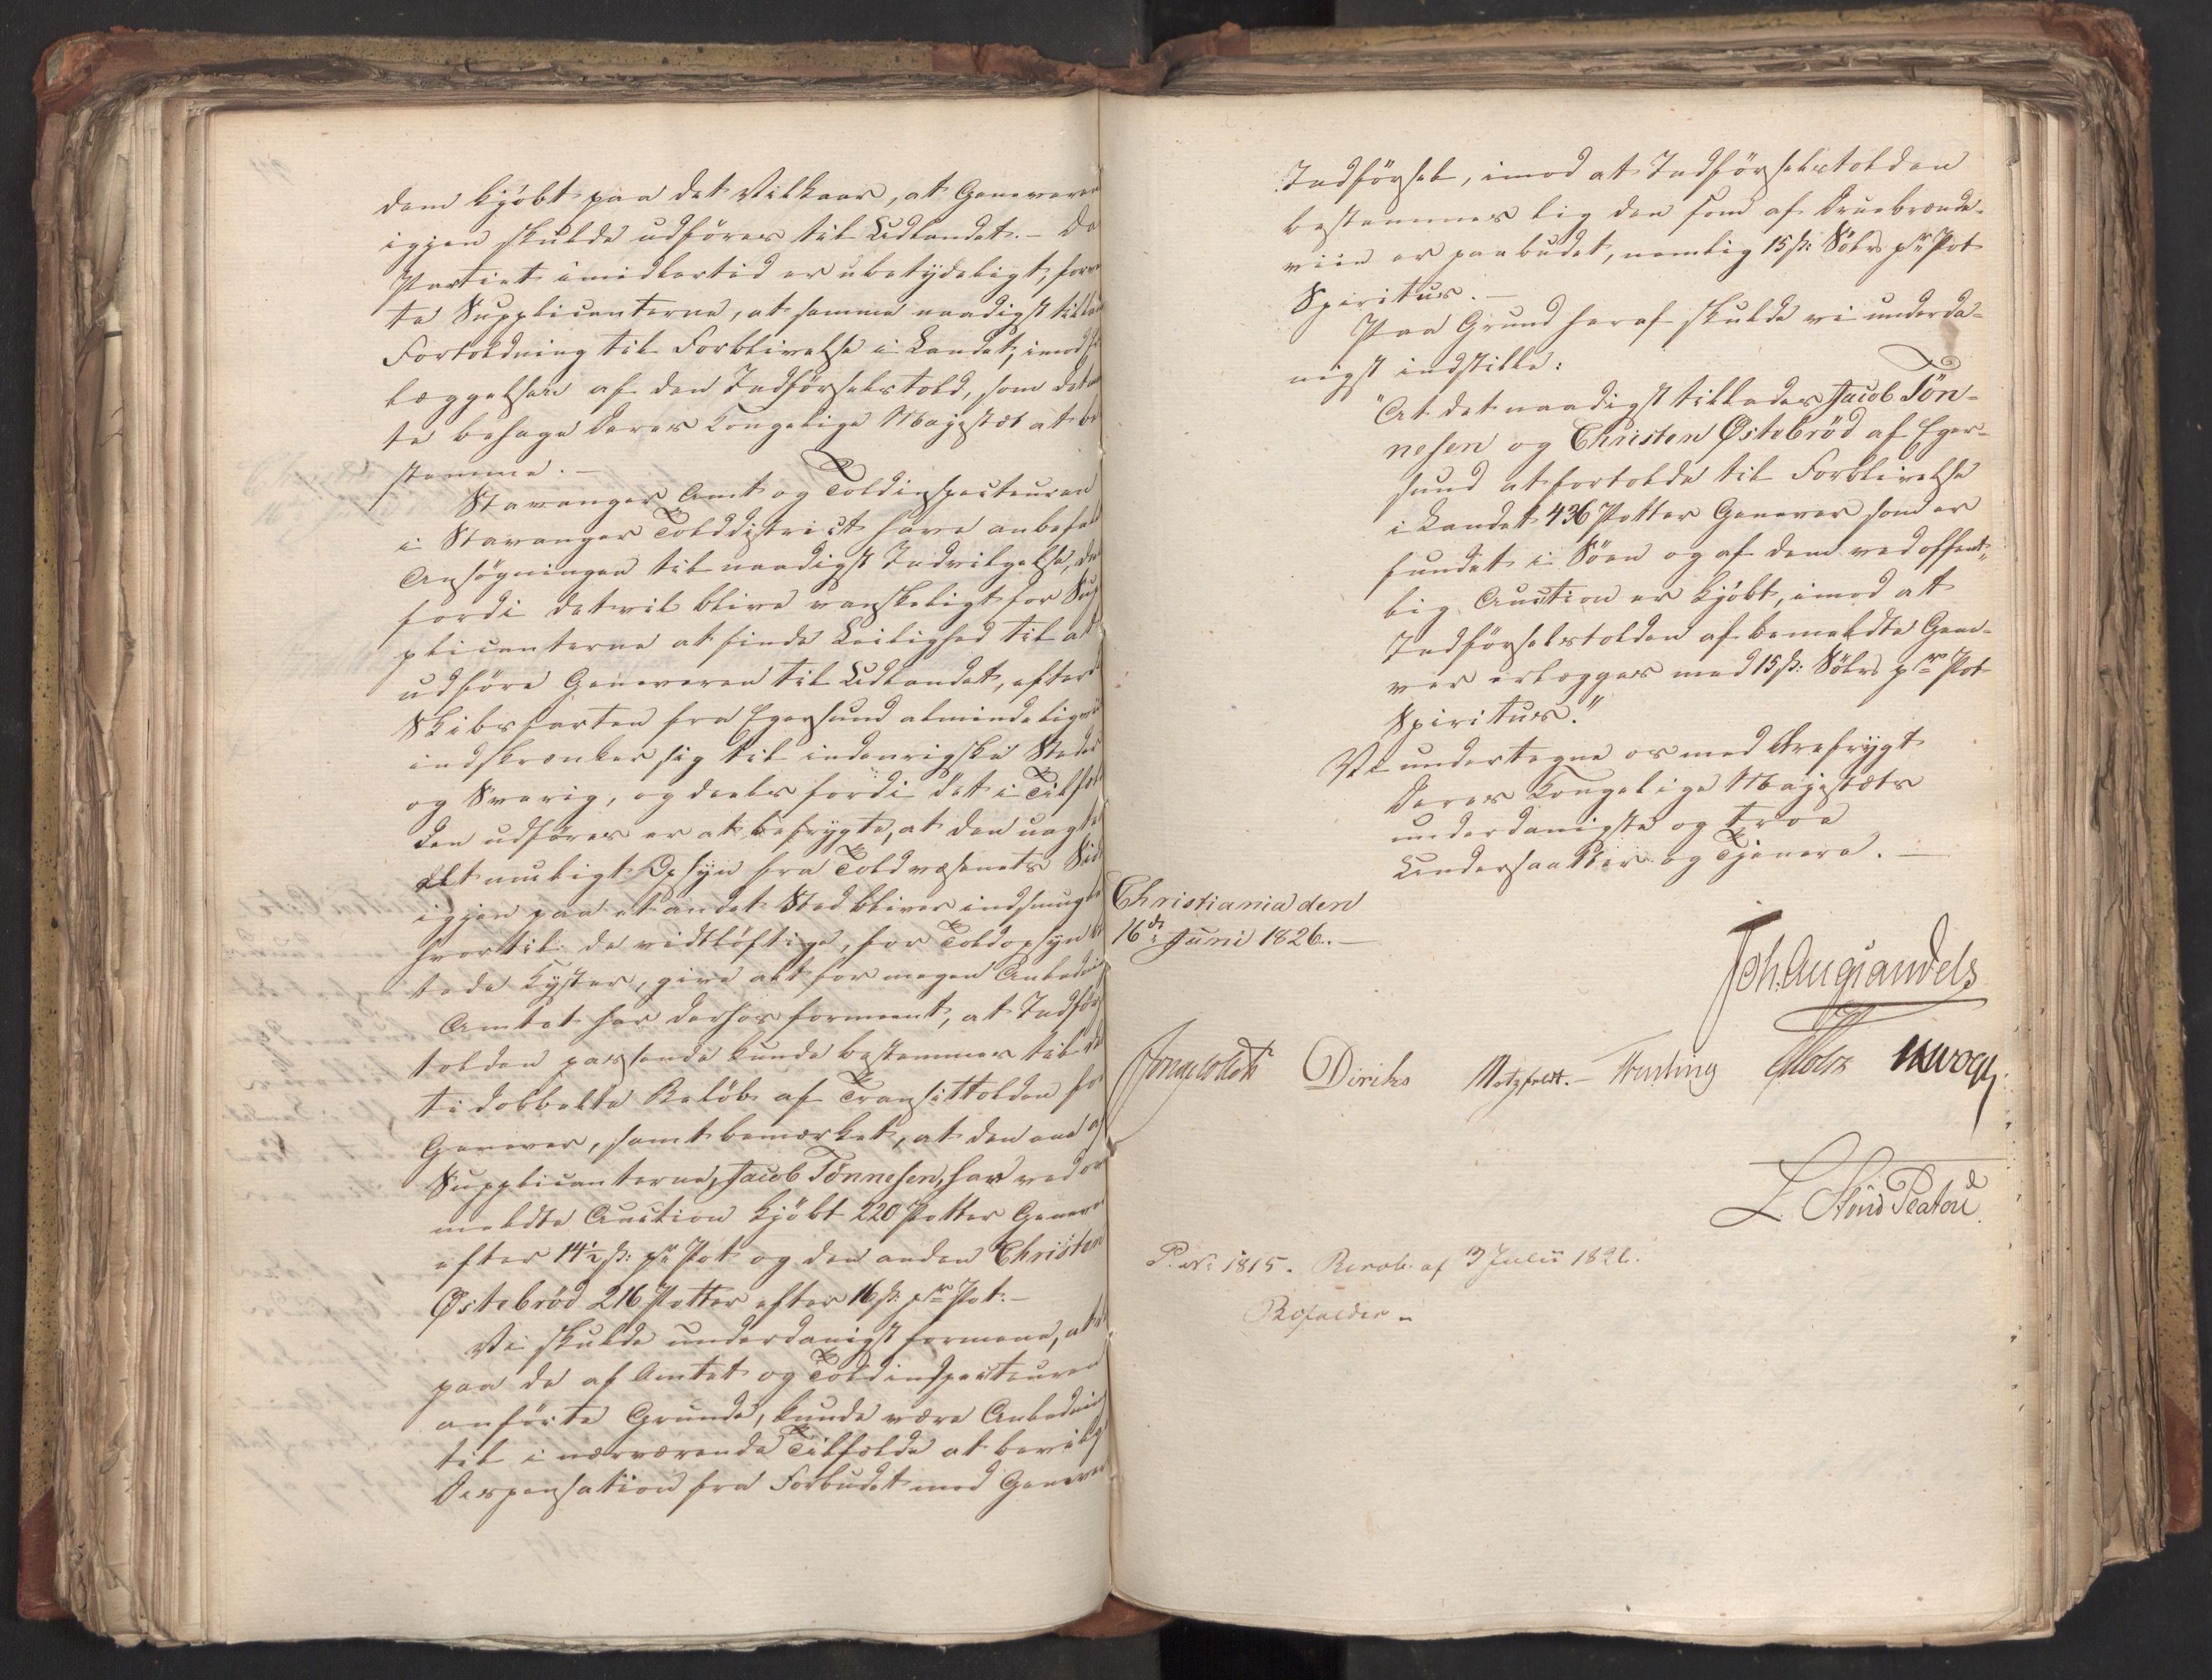 dem kjøbt paa det Vilkaar, at Geneveren
igjen skulde udføres til Udlandet. – Da
Partiet imidlertid er ubetydeligt, formeen-
te Supplicanterne, at samme naadigst tillades
Fortoldning til Forblivelse i Landet, imod
læggelsen af den Indførselstold, som det maat-
te behage Deres Kongelige Majestæt at be-
stemme. –
Stavanger Amt og Toldinspecteuren
i Stavanger Tolddistrict have anbefalet
Ansøgningen til naadigst Indvilgelse, deels
fordi det vil blive vanskeligt for Sup-
plicanterne at finde Leilighed til at
udføre Geneveren til Udlandet, efterdi
Skibsfarten fra Egersund almindeligviis
indskrænker sig til indenrigske Steder
og Sverig, og deels fordi det i Tilfælde
den udføres er at befrygte, at den uagtet
alt muligt Opsyn fra Toldvæsenets Side
igjen paa et andet Sted bliver indsmuglet
hvortil de vidtløftige, for Toldopsyn
tede Kyster, give alt for megen Anledning
Amtet har derhos formeent, at Indførsels-
tolden passende kunde bestemmes til det
ti dobbelte Beløb af Transittolden for
Genever, samt bemærket, at den ene af
Supplicanterne, Jacob Tönnesen, har ved om-
meldte Auction kjøbt 220 Potter Genever
efter 14½ ß: pr Pot og den anden Christen
Østebröd 216 Potter efter 16 ß: pr Pot. –
Vi skulde underdanigst formene, at der
paa de af Amtet og Toldinspecteuren
anførte Grunde, kunde være Anledning
til i nærværende Tilfælde at bevilge
Dispensation fra Forbudet mod Genever
Indførsel, imod at Indførselstolden
bestemmes lig den som af Druebrænde-
viin er paabudet, nemlig 15 ß: Sölv pr Pot
Spiritus. –
Paa Grund heraf skulde vi underda-
nigst indstille:
"At det naadigst tillades Jacob Tön-
nesen og Christen Østebröd af Eger-
sund at fortolde til Forblivelse
i Landet 436 Potter Genever som er
fundet i Söen og af dem ved offent-
lig Auction er kjøbt, imod at
Indførselstolden af bemeldte Gene-
ver erlægges med 15 ß: Sölv pr Pot
Spiritus."
Vi undertegne os med Ærefrygt
Deres Kongelige Majestæts
underdanigste og troe
Undersaatter og Tjenere. –
Christiania den
16de Juni 1826. –
Joh. Aug. Sandels
Diriks Motzfeldt. – Treschow Holst
P. No 1815. Resol. af 3 Julii 1826.
Bifaldes –